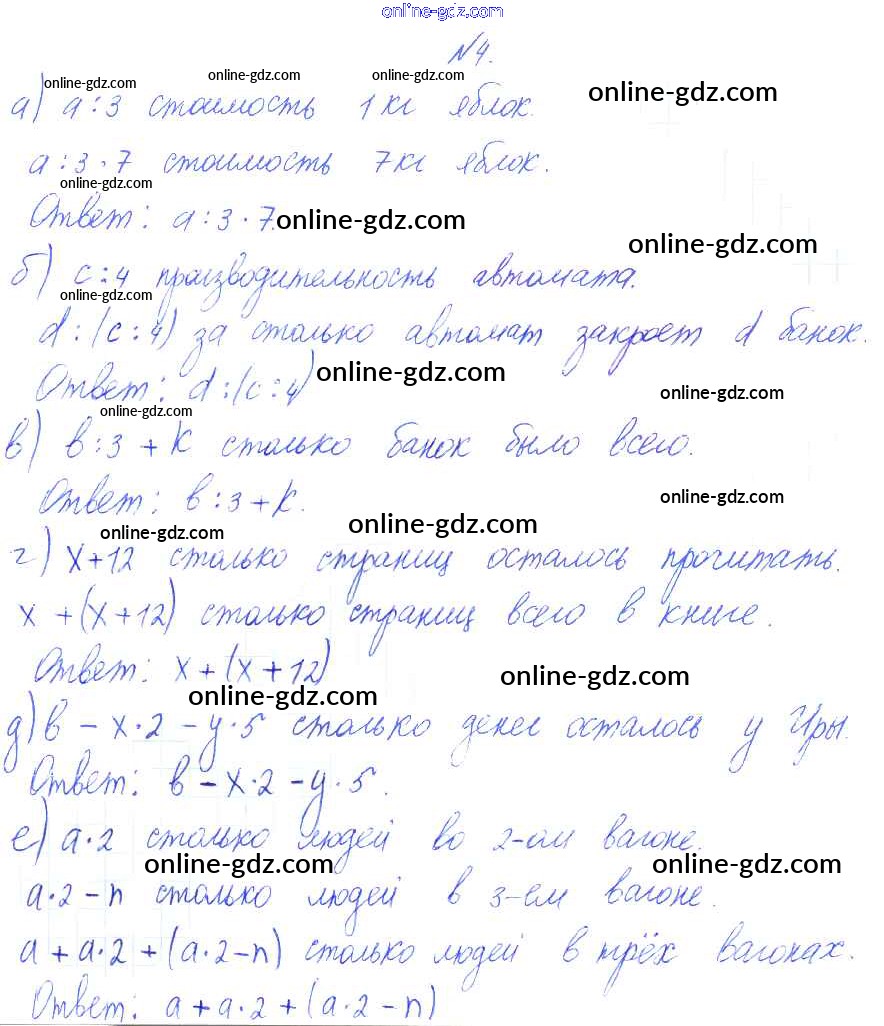 online-gdz.com
№4.
online-gdz.com online-gdz.com online-gdz.com online-gdz.com
а) a : 3 стоимость 1 кг яблок.
a : 3 · 7 стоимость 7 кг яблок.
online-gdz.com
Ответ: a : 3 · 7. online-gdz.com
online-gdz.com
б) c : 4 производительность автомата.
online-gdz.com
d : (c : 4) за столько автомат закроет d банок.
Ответ: d : (c : 4) online-gdz.com
online-gdz.com
online-gdz.com
в) b : 3 + k столько банок было всего.
Ответ: b : 3 + k.
online-gdz.com
online-gdz.com online-gdz.com
г) x + 12 столько страниц осталось прочитать.
x + (x + 12) столько страниц всего в книге.
Ответ: x + (x + 12) online-gdz.com
online-gdz.com
д) b – x · 2 – y · 5 столько денег осталось у Иры.
Ответ: b – x · 2 – y · 5.
е) a · 2 столько людей во 2-ом вагоне.
online-gdz.com online-gdz.com
a · 2 – n столько людей в 3-ем вагоне.
a + a · 2 + (a · 2 – n) столько людей в трёх вагонах.
Ответ: a + a · 2 + (a · 2 – n)